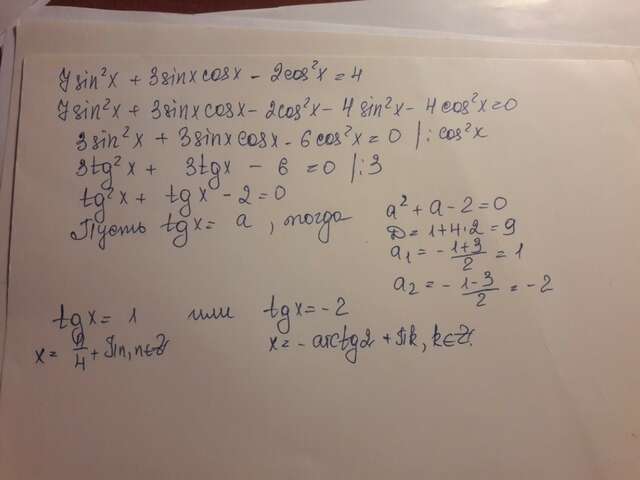 7sin²x + 3sinxcosx - 2cos²x = 4
7sin²x + 3sinxcosx - 2cos²x - 4sin²x - 4cos²x = 0
3sin²x + 3sinxcosx - 6cos²x = 0 |:cos²x
3tg²x + 3tgx - 6 = 0 |:3
tg²x + tgx - 2 = 0
Пусть tgx = a, тогда
a² + a - 2 = 0
D = 1 + 4·2 = 9
a₁ = -1+3/2 = 1
a₂ = -1-3/2 = -2
tgx = 1 или tgx = -2
x = π/4 + πn, n∈Z x = -arctg2 + πk, k∈Z.